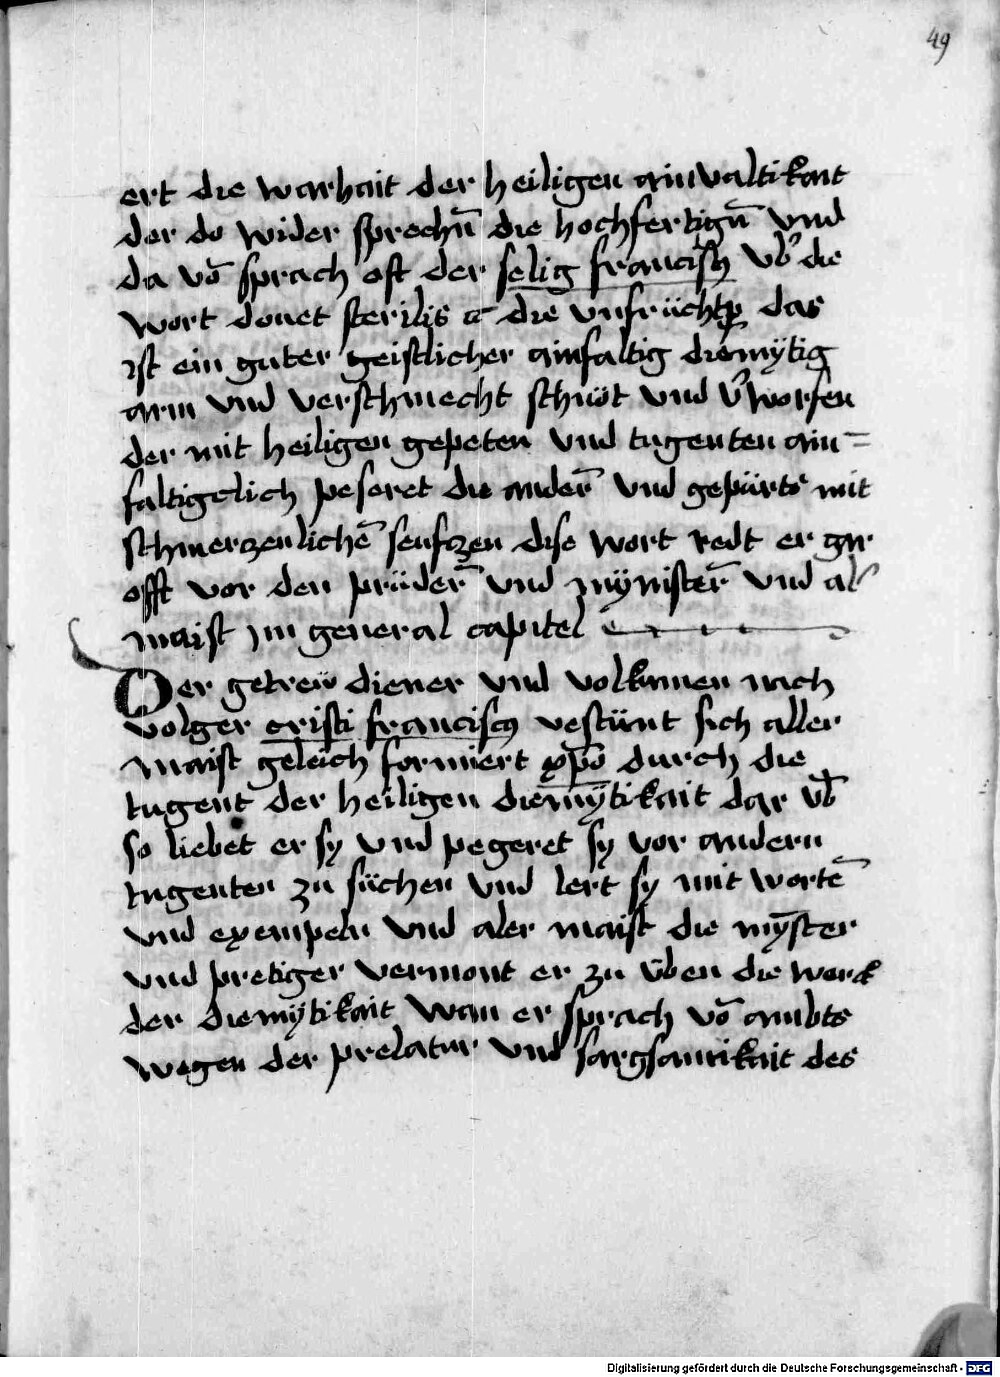 49
ert die warhait der heiligen ainvaltikait
der do wider sprechn̄ die hochfertign̄ vnd
da vō sprach oft der selig franciscꝰ vb̾ die
wort donet sterilis ꝛc̄ die vnfrücht das
ist ein guter geistlicher ainfaltig diemÿtig
arm vnd verschmecht schnöt vnd v̾worfen
der mit heiligen gepeten vnd tugenten ain=
faltigclich peseret die ander̄ vnd gepürts mit
schmerczenlichē seufczen dise wort redt er gar
offt vor den prüder̄ vnd mÿnister̄ vnd al
maist im general capitel
Der getreẅ diener vnd volkumen nach
volger cristi franciscꝰ vestünt sich aller
maist geleich formiert xp̄o durch die
tugent der heiligen diemÿtikait dar vb̄
so liebet er sy vnd pegeret sy vor andern
tugenten zu süchen vnd lert sy mit wortē
vnd exempeln vnd aler maist die mȳster
vnd pretiger vermont er zu üben die werck
der diemÿtikait wan er sprach vō ambts
wegen der prelatur vnd sargsamikait des
Digitalisierung gefördert durch die Deutsche Forschungsgemeinschaft - DFG